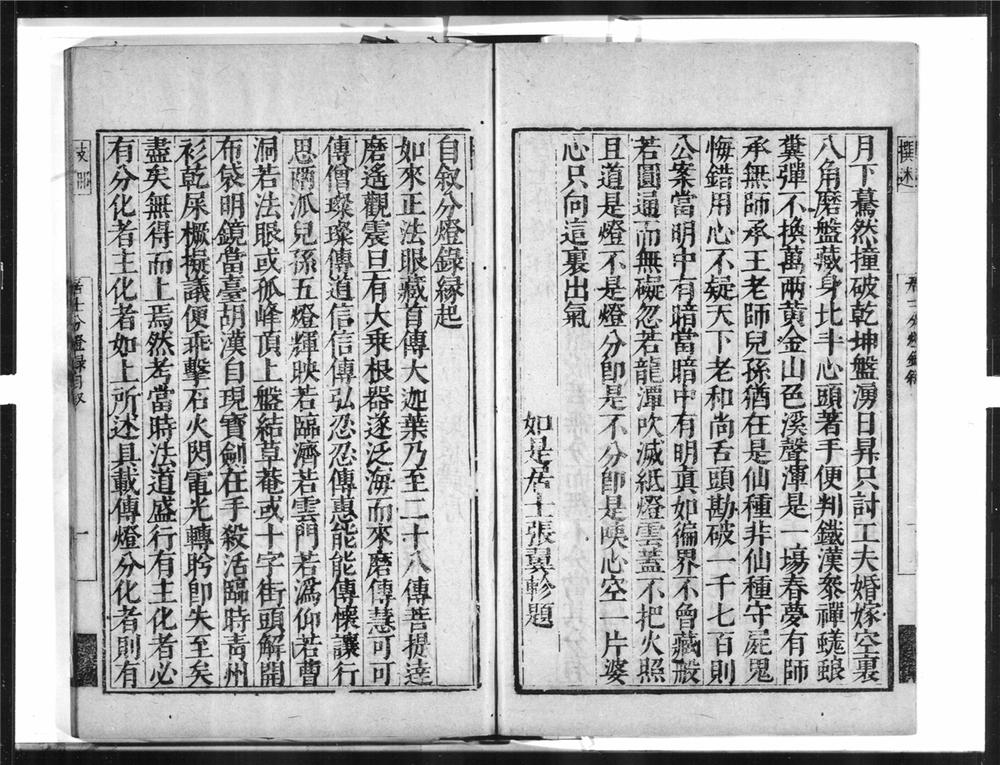 月下驀然撞破乾坤盤湧日昇只討工夫婚嫁空裏
八角磨盤藏身北斗心頭著手便判鐵漢叅禪蜣蜋
糞彈不換萬兩黃金山色溪聲渾是一塲春夢有師
承無師承王老師兒孫猶在是仙種非仙種守屍鬼
悔錯用心不疑天下老和尚舌頭勘破一千七百則
公案當明中有暗當暗中有明真如徧界不曾藏般
若圓通而無礙忽若龍潭吹滅紙燈雲葢不把火照
且道是燈不是燈分卽是不分卽是噢心空一片婆
心只向這裏出氣
如是居士張翼軫題
自敘分燈錄緣起
如來正法眼藏首傳大迦葉乃至二十八傳菩提達
磨遙觀震旦有大乘根器遂泛海而來磨傳慧可可
傳僧璨璨傳道信信傳弘忍忍傳惠能能傳懷讓行
思兩派兒孫五燈輝映若臨濟若雲門若溈仰若曹
洞若法眼或孤峰頂上盤結草菴或十字街頭解開
布袋明鏡當臺胡漢自現寶劍在手殺活臨時青州
衫乾屎橛擬議便乖擊石火閃電光轉盻卽失至矣
盡矣無得而上焉然考當時法道盛行有主化者必
有分化者主化者如上所述具載傳燈分化者則有